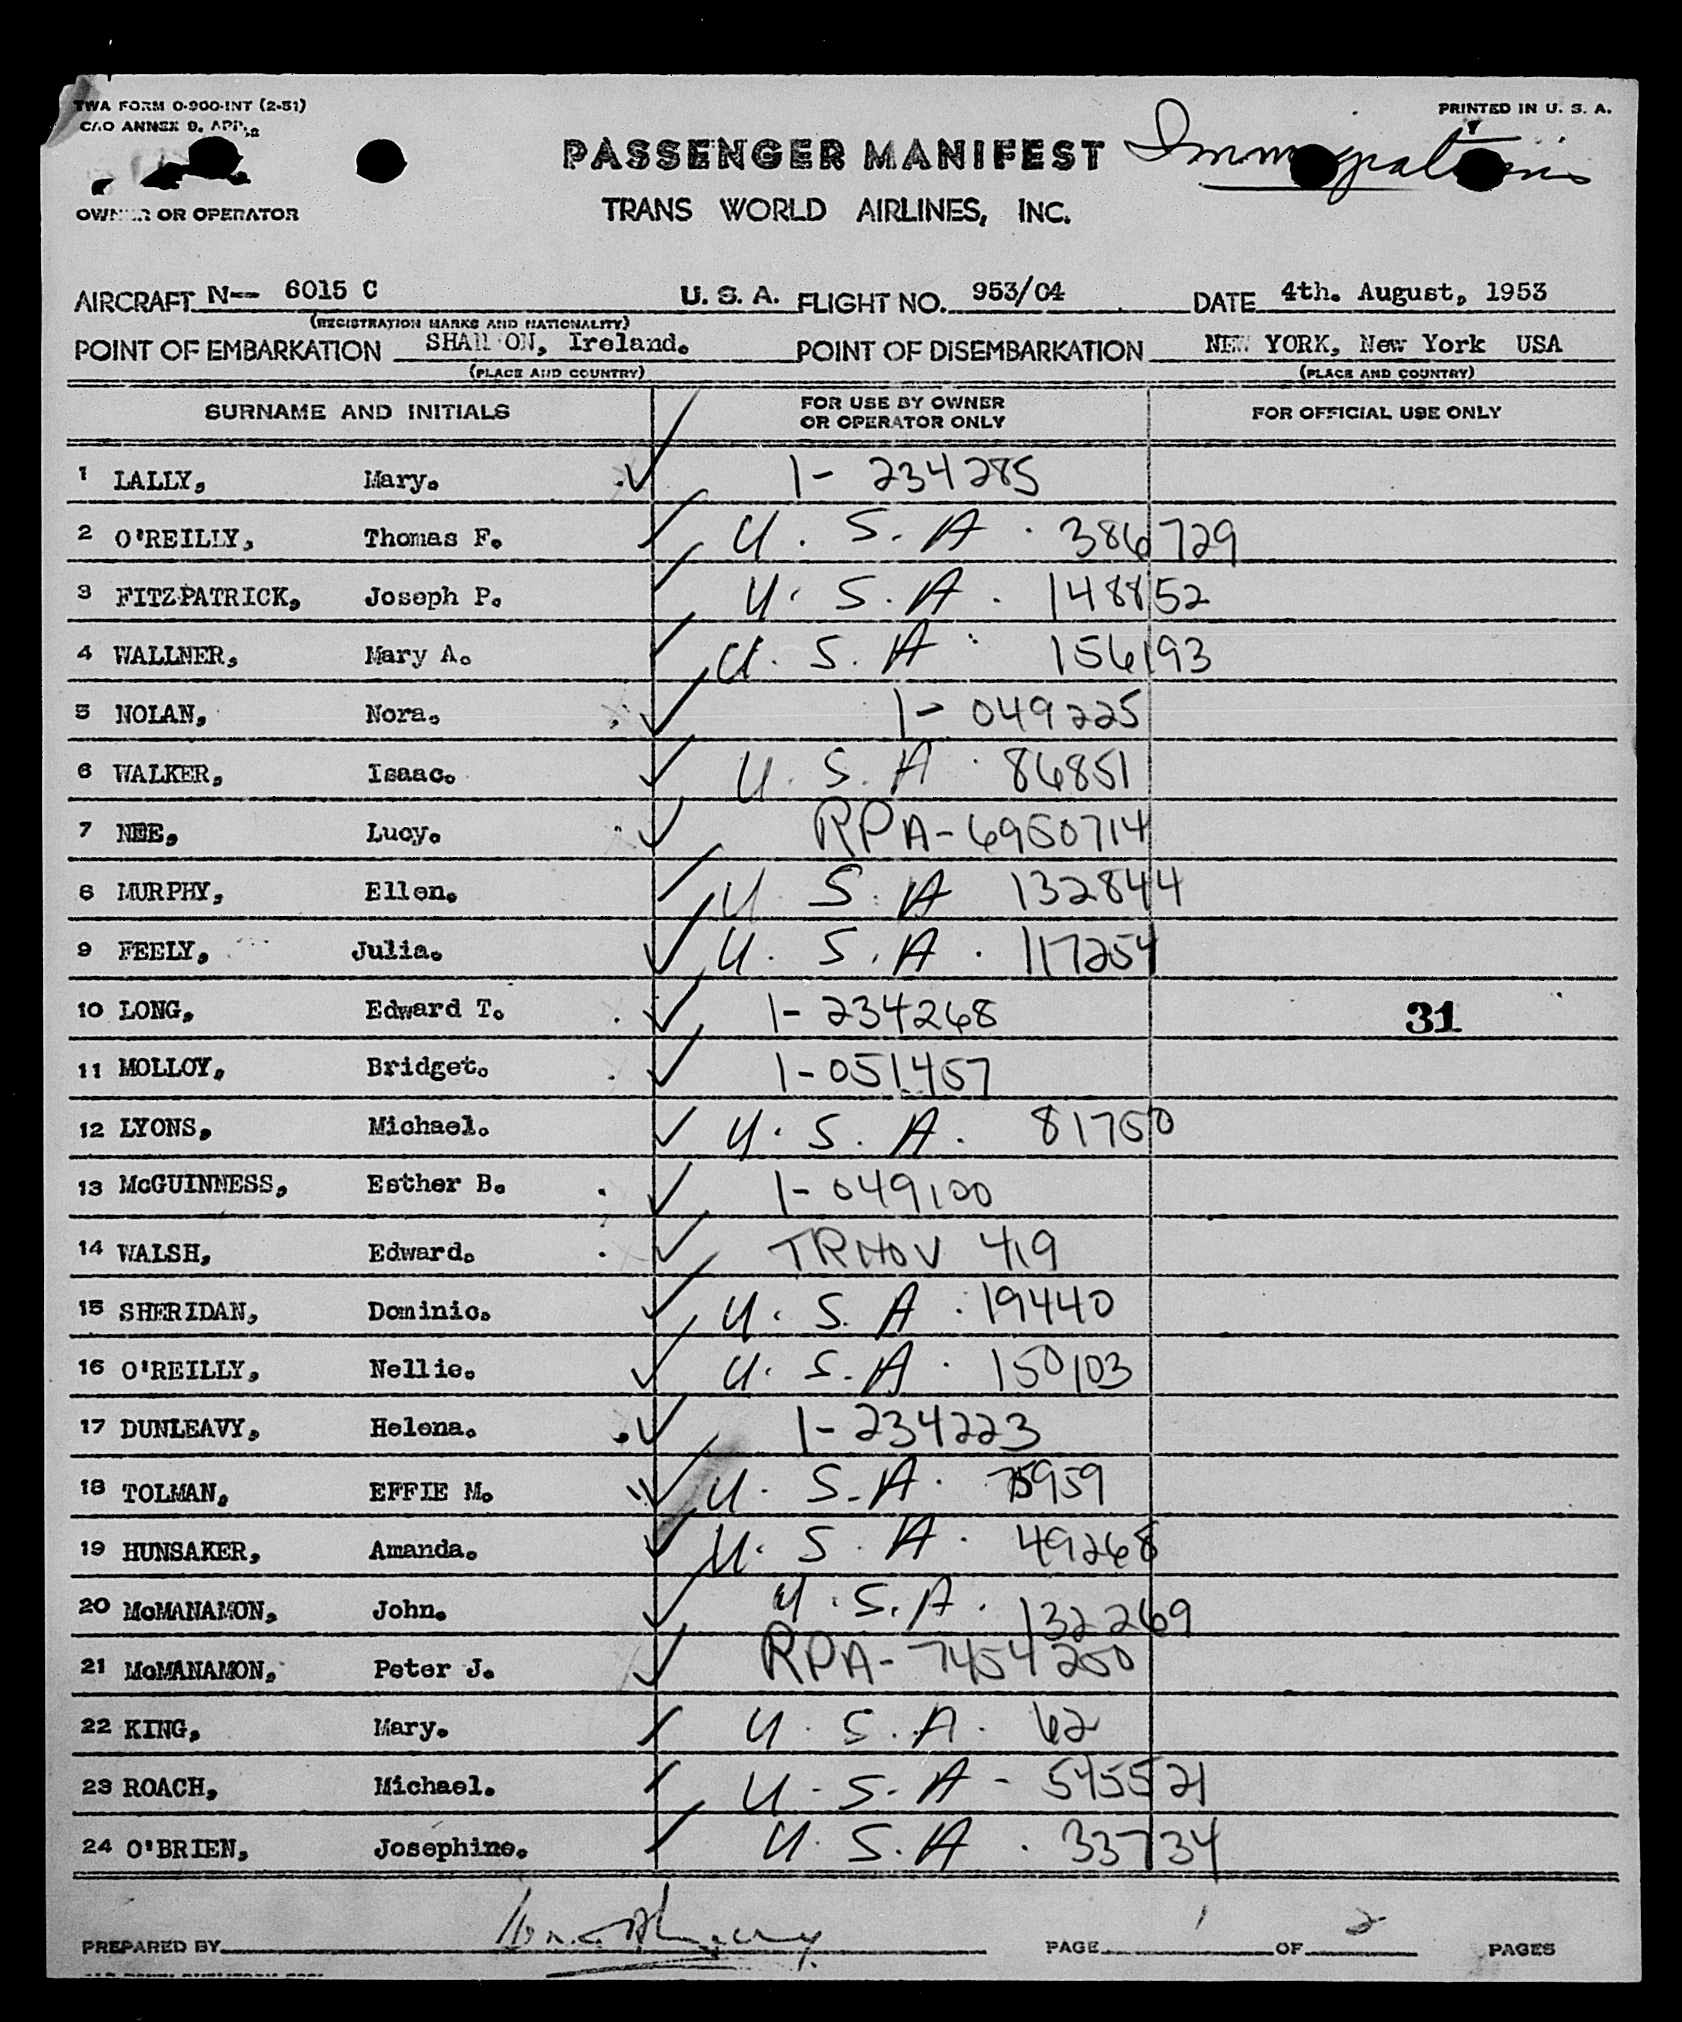 TWA FORM O-900-INT (2-51)
PRINTED IN U. S. A.
ICAO ANNEX 9, APP.
PASSENGER MANIFEST Immigrations
OWNER OR OPERATOR
TRANS WORLD AIRLINES, INC.
AIRCRAFT N-- 6015 C U. S. A. FLIGHT NO. 953/04 DATE 4th. August, 1953
(REGISTRATION MARKS AND NATIONALITY)
POINT OF EMBARKATION SHANNON, Ireland. POINT OF DISEMBARKATION NEW YORK, New York USA
(PLACE AND COUNTRY) (PLACE AND COUNTRY)
SURNAME AND INITIALS FOR USE BY OWNER OR OPERATOR ONLY FOR OFFICIAL USE ONLY
1 LALLY, Mary. 1- 234285
2 O'REILLY, Thomas F. U. S. A. 386729
3 FITZPATRICK, Joseph P. U. S. A. 148852
4 WALLNER, Mary A. U. S. A. 156193
5 NOLAN, Nora. 1- 049225
6 WALKER, Isaac. U. S. A. 86851
7 NEE, Lucy. RPA-6950714
8 MURPHY, Ellen. U S. A 132844
9 FEELY, Julia. U. S. A. 117254
10 LONG, Edward T. 1- 234268 31
11 MOLLOY, Bridget. 1-051457
12 LYONS, Michael. U. S. A. 81750
13 McGUINNESS, Esther B. 1-049100
14 WALSH, Edward. 419
15 SHERIDAN, Dominic. U. S. A. 19440
16 O'REILLY, Nellie. U. S. A. 150103
17 DUNLEAVY, Helena. 1-234223
18 TOLMAN, EFFIE M. U. S. A. 75959
19 HUNSAKER, Amanda. U. S. A. 49268
20 McMANAMON, John. U. S. A. 132269
21 McMANAMON, Peter J. RPA-7454250
22 KING, Mary. U. S. A. 62
23 ROACH, Michael. U. S. A - 545521
24 O'BRIEN, Josephine. U. S. A. 33734
PREPARED BY PAGE 1 OF 2 PAGES